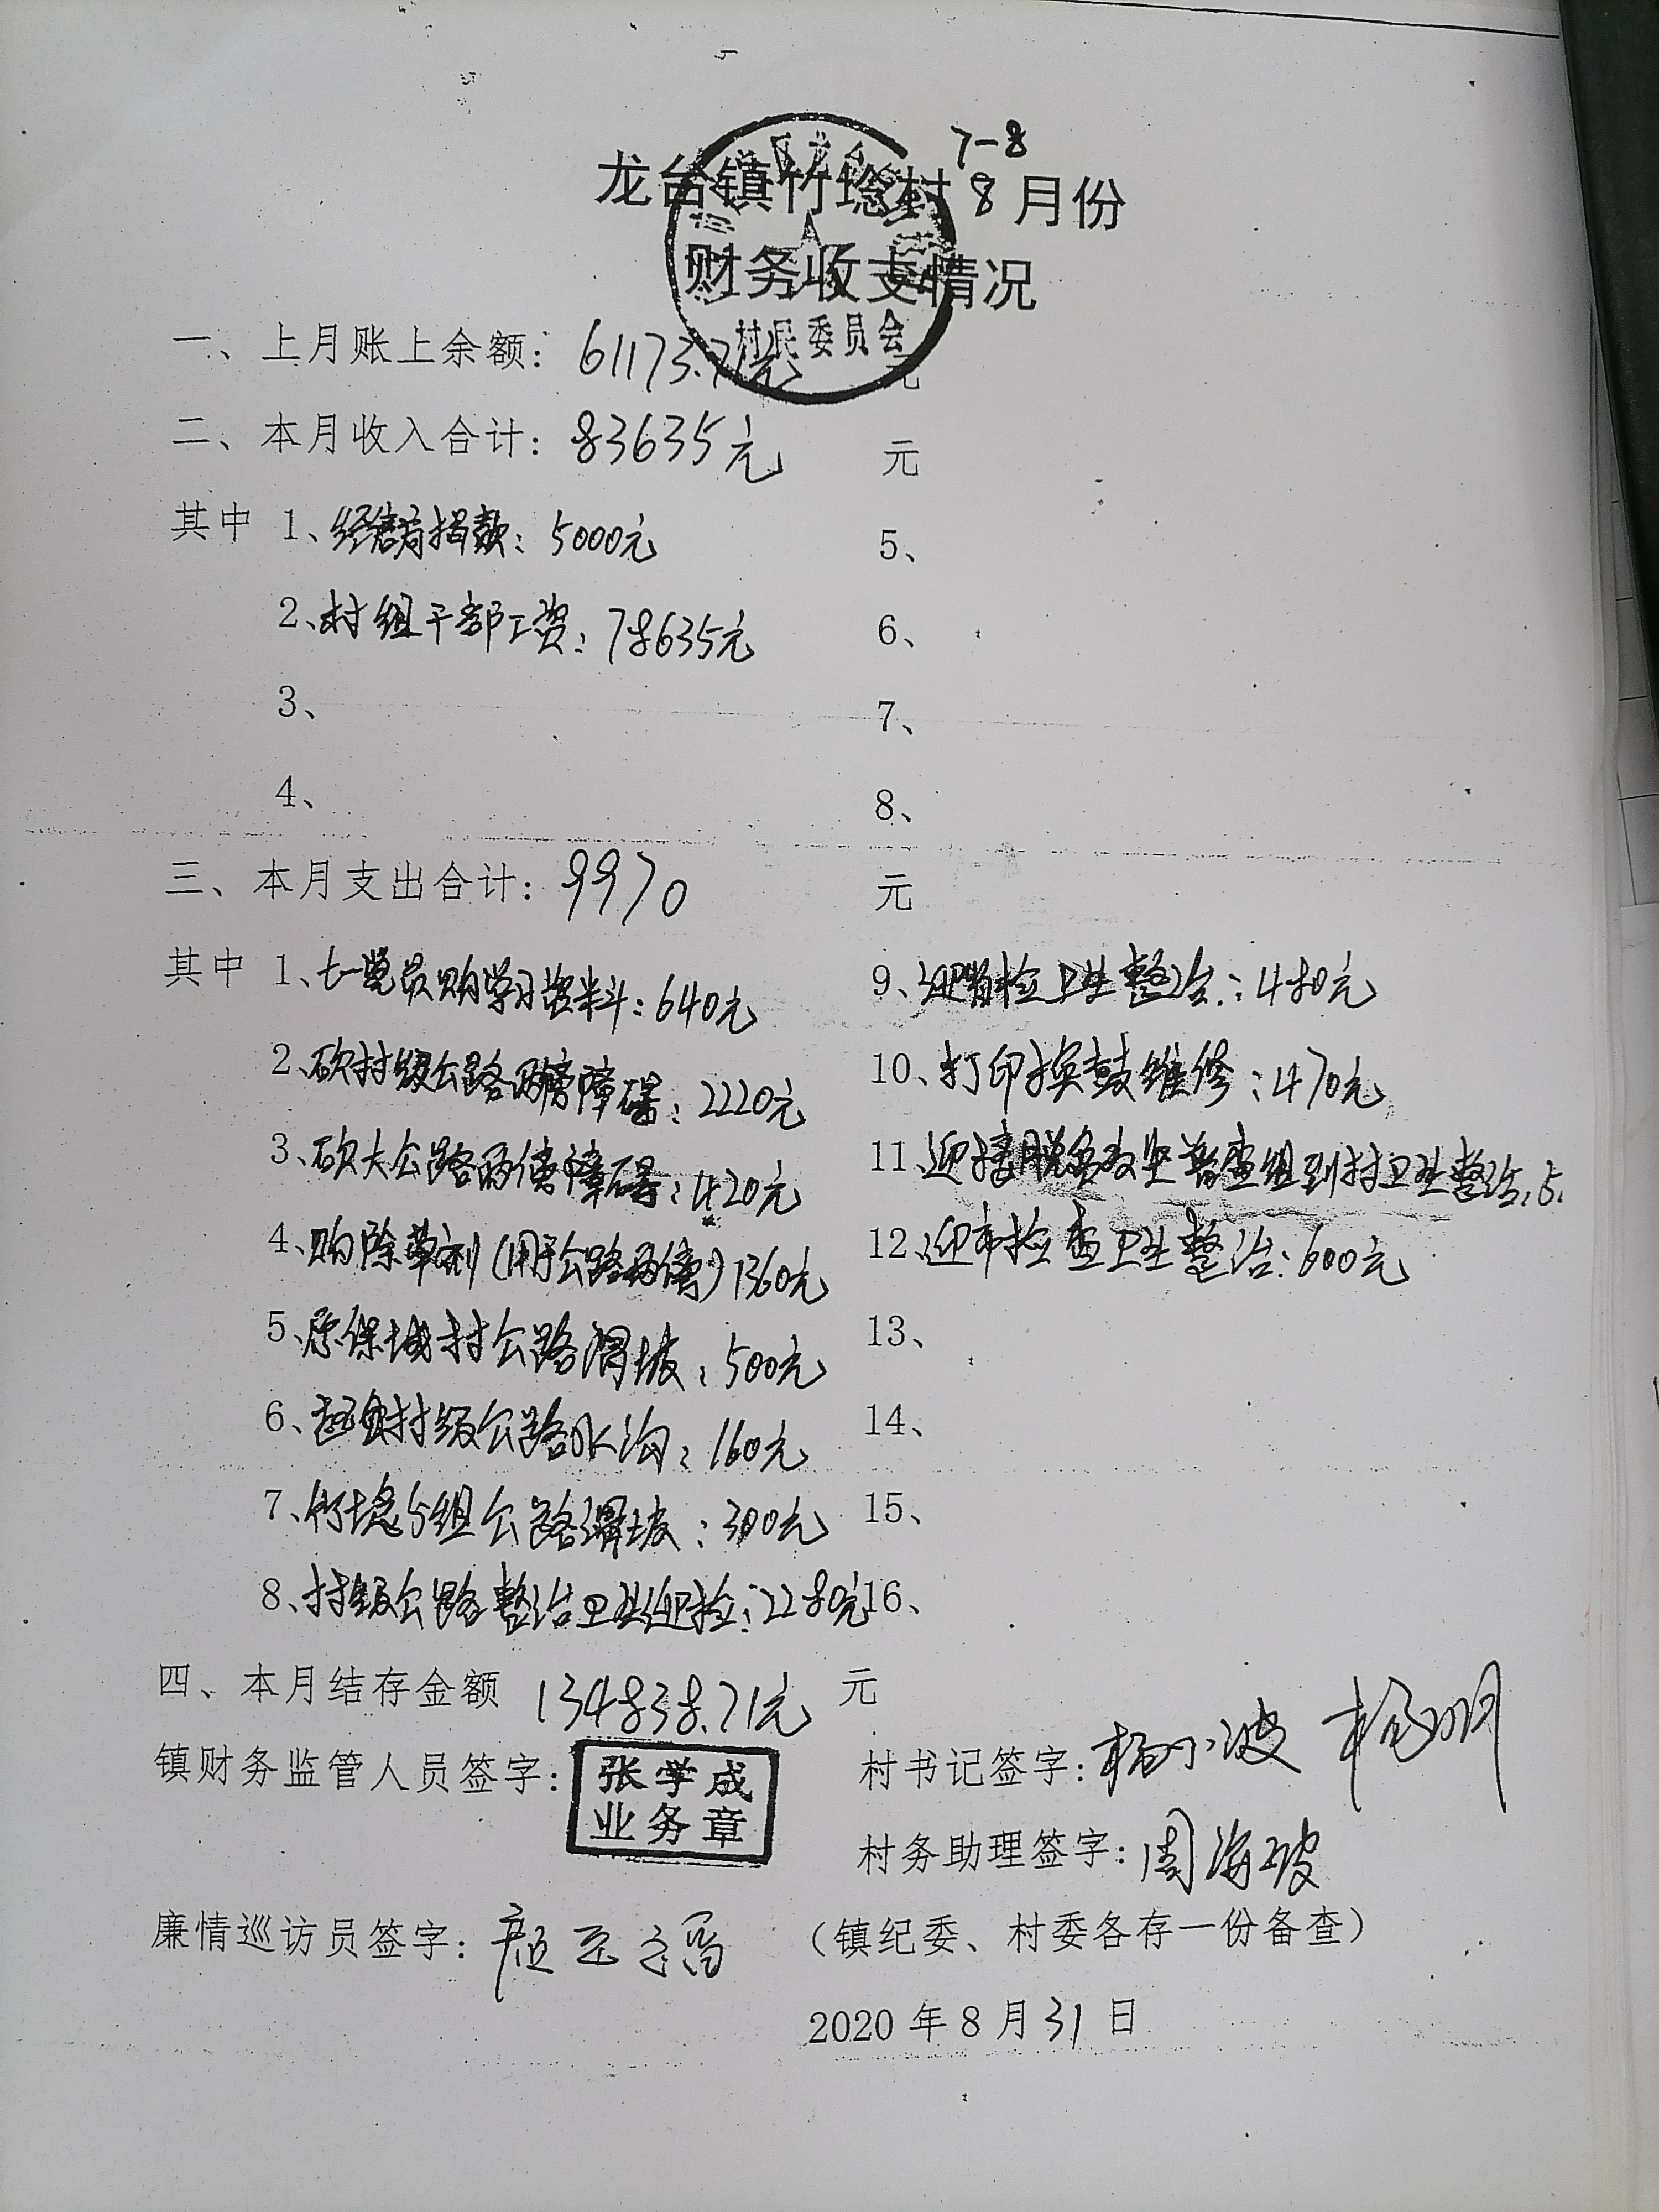 7-8
龙台镇竹埝村8月份
财务收支情况
村民委员会
一、上月账上余额：61173.71元 元
二、本月收入合计：83635元 元
其中 1、经信局捐款：5000元 5、
2、村组干部工资：78635元 6、
3、 7、
4、 8、
三、本月支出合计：9970 元
其中 1、七一党员购学习资料：640元 9、迎省检卫生整治：480元
2、砍村级公路两傍障碍：2220元 10、打印换鼓维修：470元
3、砍大公路两傍障碍：420元 11、迎接脱贫攻坚普查组到村卫生整治：5
4、购除草剂（用于公路两傍）1360元 12、迎市检查卫生整治：600元
5、原保城村公路滑坡：500元 13、
6、村级公路水沟：160元 14、
7、竹埝5组公路滑坡：300元 15、
8、村级公路整治卫生迎检：2280元 16、
四、本月结存金额 134838.71元 元
镇财务监管人员签字： 张学成 业务章 村书记签字：杨小波 杨明
村务助理签字：周海波
廉情巡访员签字： （镇纪委、村委各存一份备查）
2020年8月31日